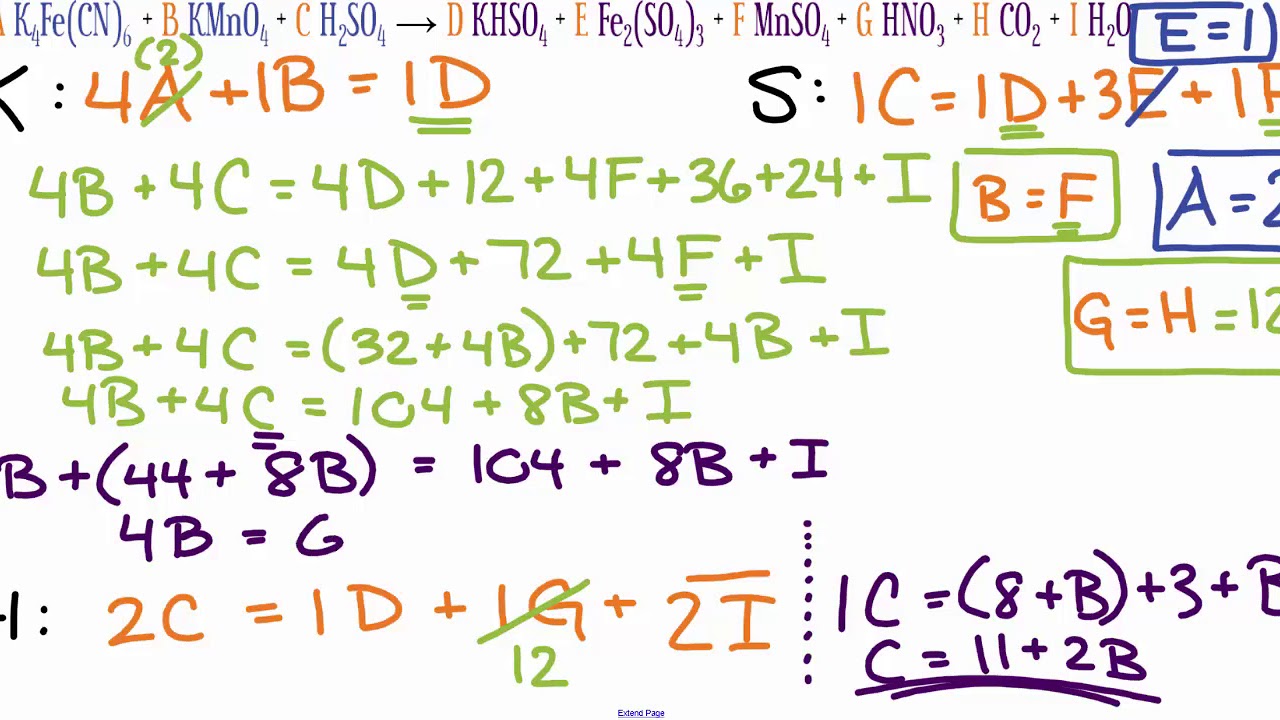 A K₄Fe(CN)₆ + B KMnO₄ + C H₂SO₄ → D KHSO₄ + E Fe₂(SO₄)₃ + F MnSO₄ + G HNO₃ + H CO₂ + I H₂O
E = 1
(2)
K : 4A + 1B = 1D
S : 1C = 1D + 3E + 1F
4B + 4C = 4D + 12 + 4F + 36 + 24 + I
B = F
A = 2
4B + 4C = 4D + 72 + 4F + I
G = H = 12
4B + 4C = (32 + 4B) + 72 + 4B + I
4B + 4C = 104 + 8B + I
B + (44 + 8B) = 104 + 8B + I
4B = G
H : 2C = 1D + 1G + 2I
12
1C = (8 + B) + 3 + B
C = 11 + 2B
Extend Page